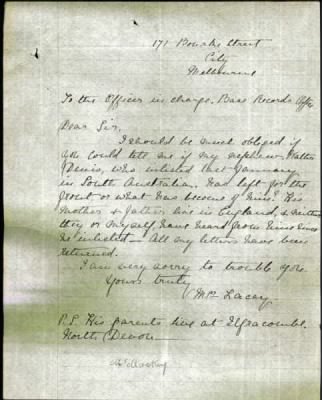 171 Bourke Street
City
Melbourne
To the Officer in charge. Base Records Office
Dear Sir.
I should be much obliged if
you could tell me if my nephew
Denis, who enlisted last January
in South Australia. had left for the
front or what has become of him. His
mother & father live in England, & neither
they or myself have heard from him since
he enlisted - All my letters have been
returned.
I am very sorry to trouble you.
Yours truly
Mrs Lacey.
P.S. His parents live at Ilfracombe.
North Devon